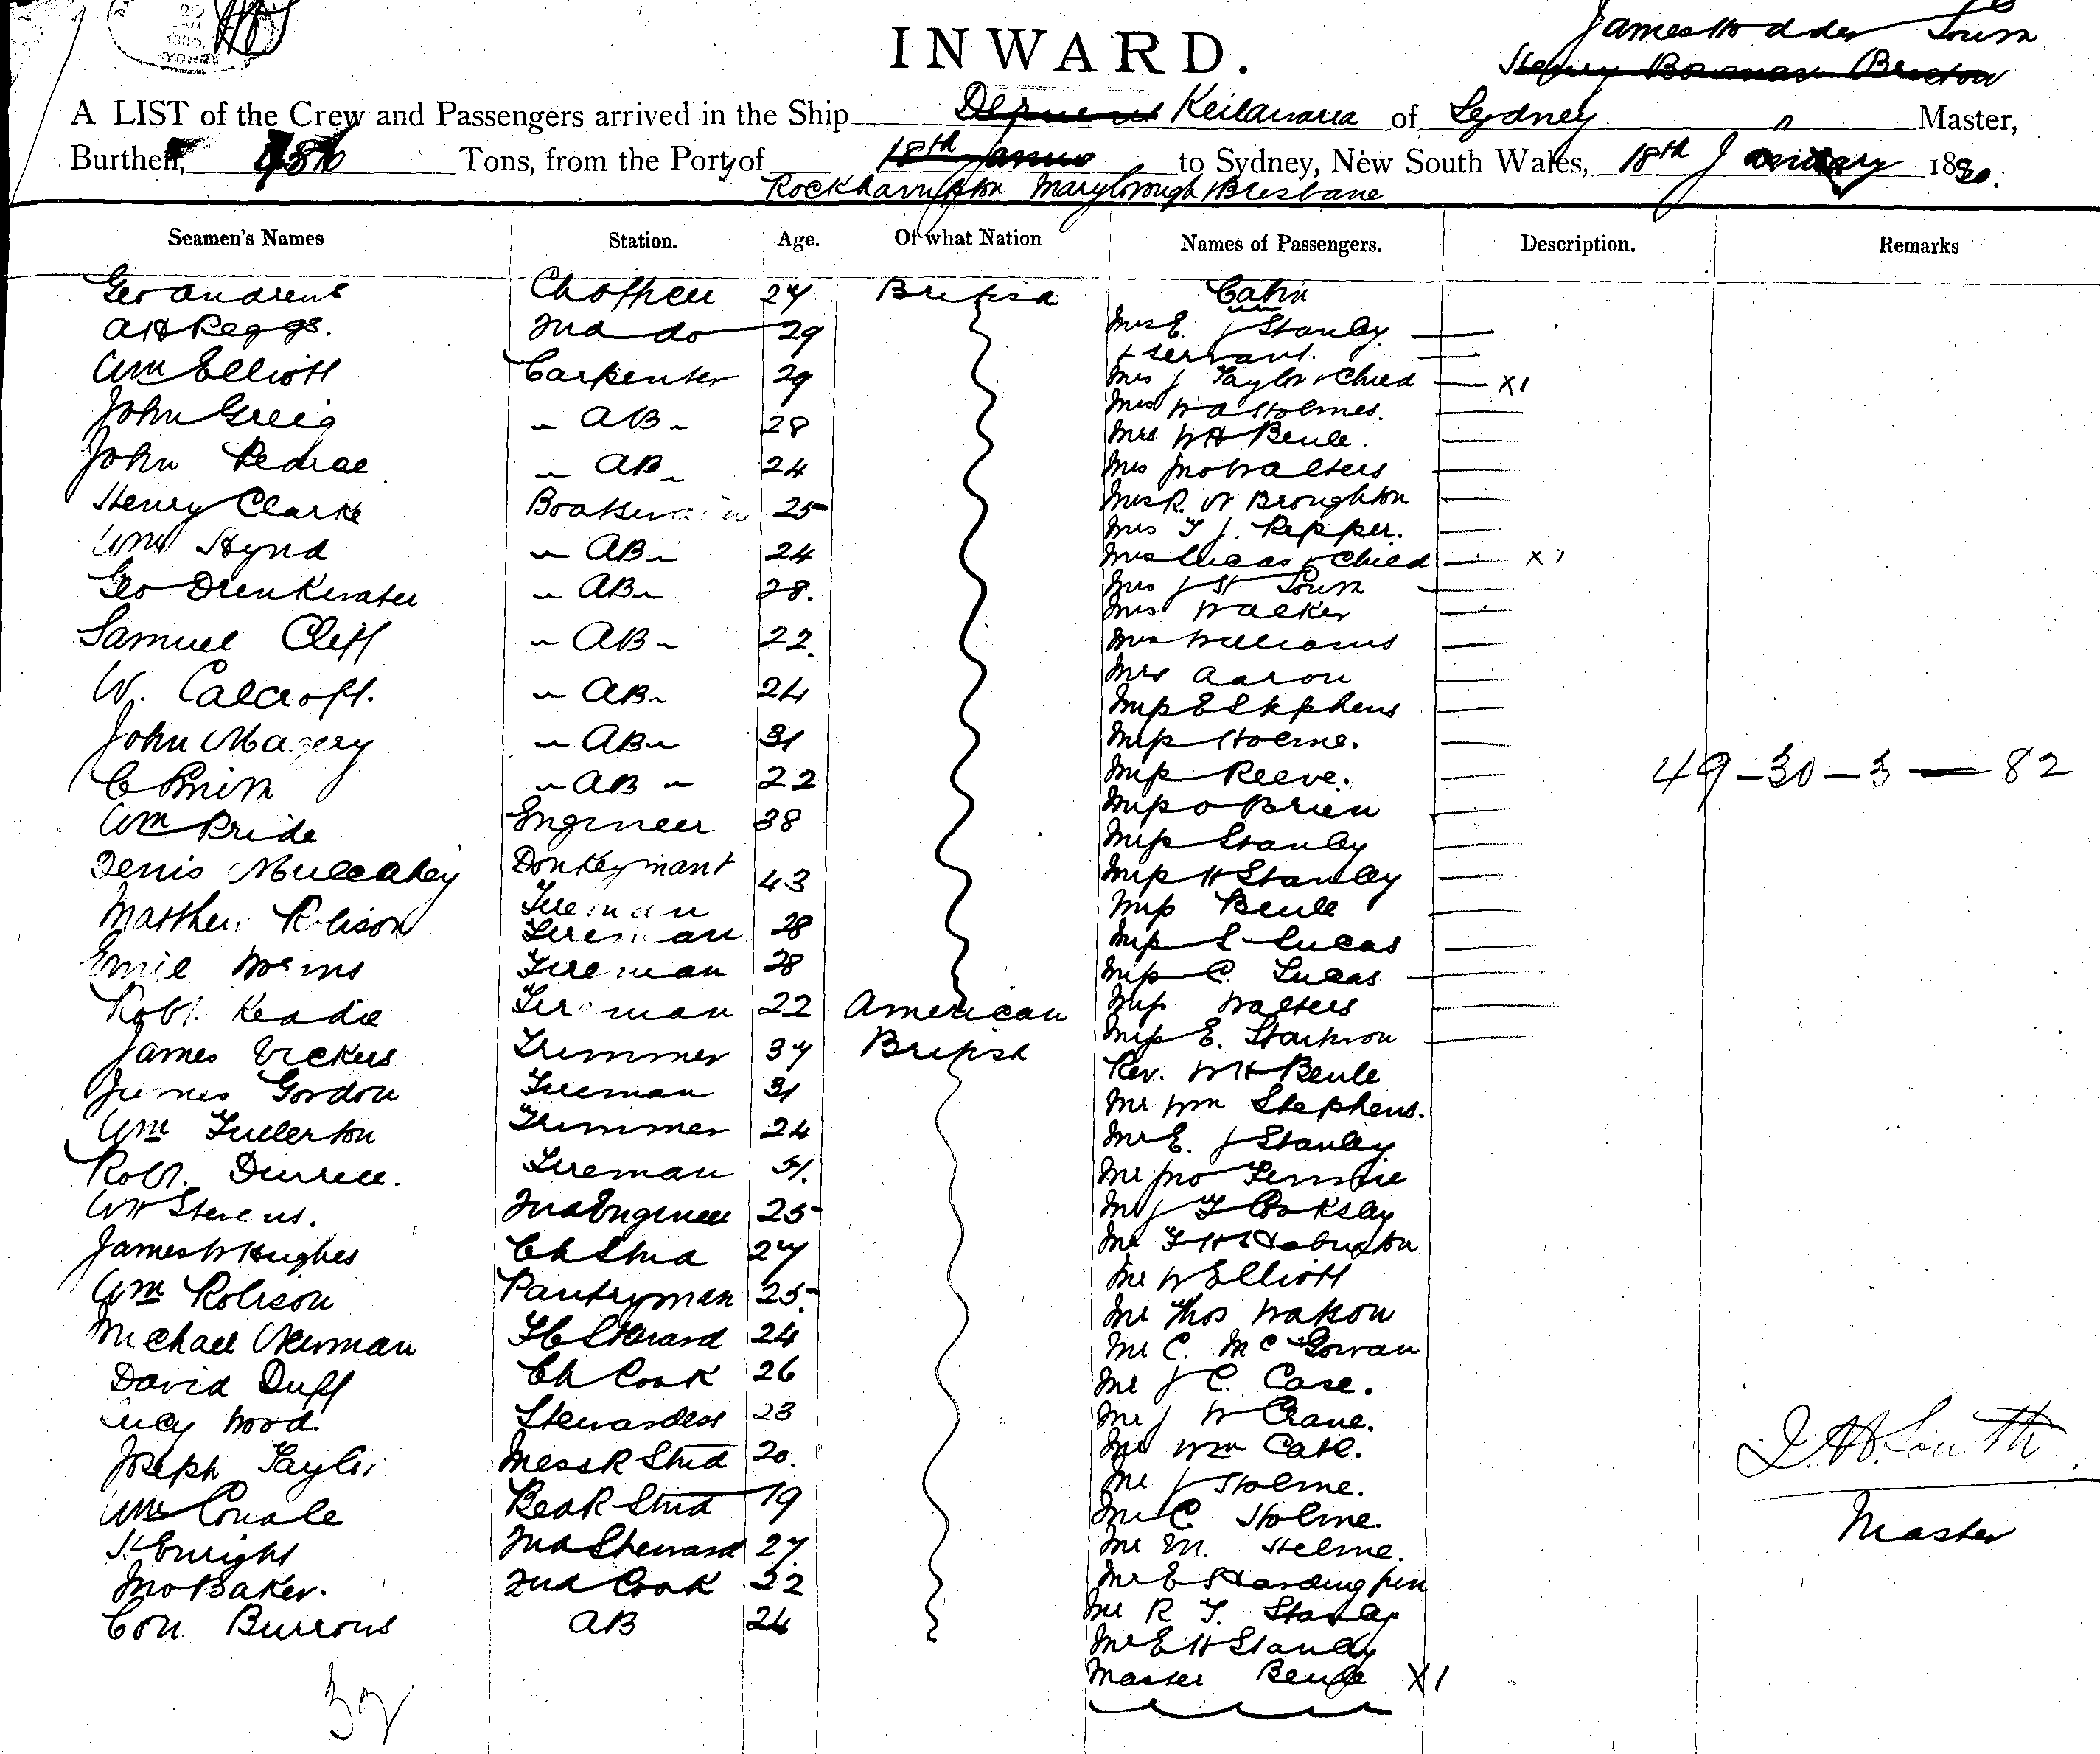 INWARD.
James Hodder South
Henry Bowman Bruton
A LIST of the Crew and Passengers arrived in the Ship Keilawarra of Sydney Master,
Burthen, Tons, from the Port of 18th Janua to Sydney, New South Wales, 18th January 18
Rockhampton Maryborough Brisbane
Seamen's Names Station. Age. Of what Nation Names of Passengers. Description. Remarks
Geo Andrews Ch Officer 27 British Cabin
Mrs E J Stanley
A H Peggs. 2nd do 29
+ servant.
Wm Elliott Carpenter 29 Mrs J Taylor + Child X1
Mrs W A Holmes.
John Greig AB 28 Mrs W H Beule.
John Pedrae AB 24 Mrs Jno Walters
Henry Clarke Boatswain 25 Mrs R. W Broughton
Mrs T J. Pepper.
Wm Hynd AB 24 Mrs Lucas + Child X1
Geo Drinkwater AB 28. Mrs J H South
Mrs Walker
Samuel Cliff AB 22. Mrs Williams
W. Calcroft. AB 24 Mrs Aaron
Miss E Stephens
John Magery AB 31 Miss Holme.
C Smith AB 22 Miss Reeve. 49-30-3-82
Wm Pride Engineer 38 Miss O Brien
Miss Stanley
Denis Mulcahey Donkeyman + 43 Miss H Stanley
Fireman
Matthew Robison Fireman 28 Miss Beule
Miss L Lucas
Emil Worms Fireman 28 Miss C. Lucas
Robt. Keadie Fireman 22 American Miss Walters
James Vickers Trimmer 37 British Miss E.
Rev. W H Beule
James Gordon Fireman 31 Mr Wm Stephens.
Wm Fullerton Trimmer 24 Mr E. J Stanley
Robt. Durrell. Fireman 51. Mr Jno
W H Stevens. 2nd Engineer 25 Mr J T Cooksley
James W Hughes Ch Stwd 27 Mr
Wm Robison Pantryman 25. Mr W Elliott
Mr Thos Watson
Michael Newman F C Steward 24 Mr C. McGowan
David Duff Ch Cook 26 Mr J C. Case.
Lucy Wood. Stewardess 23 Mr J W Crane.
Joseph Taylor Mess R Stwd 20. Mr Wm Catt.
Mr J Holme.
Wm Bed R Stwd 19 Mr C Holme.
H Enright 2nd Steward 27. Mr M. Holme.
Jno Baker. 2nd Cook 22 Mr E Harding Jun
Con Burrows AB 24 Mr R T. Stanley
Mr E H Stanley
Master Beule X1
J. H. South
Master